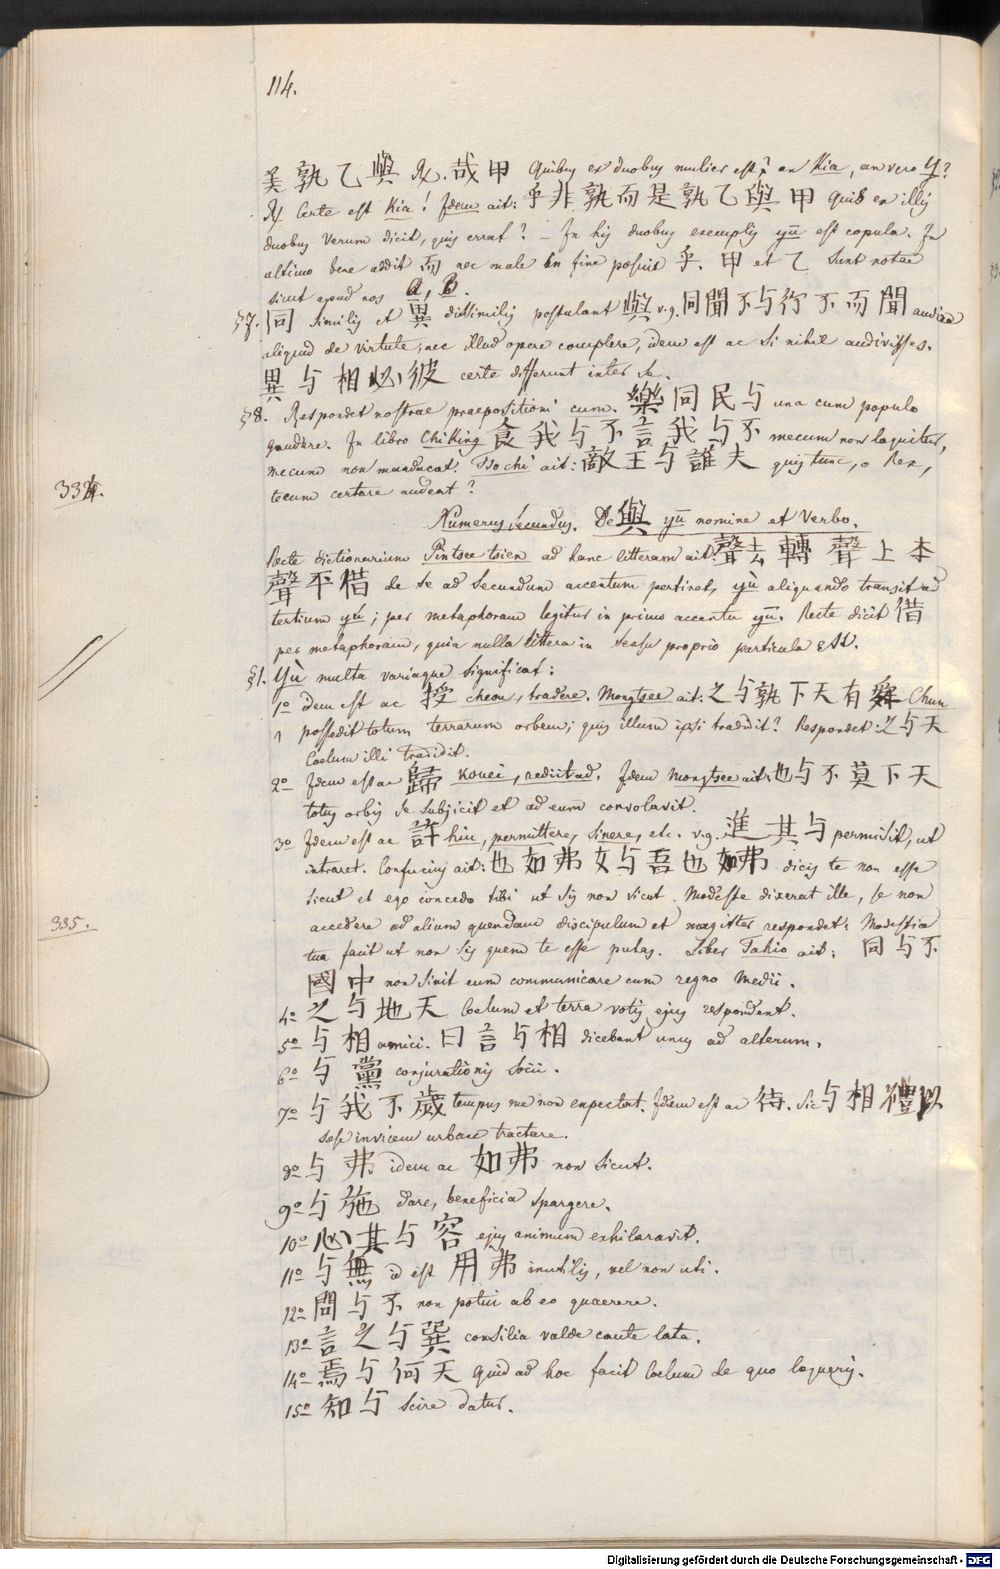 114.
美孰乙與 ℞. 哉甲 Quibus ex duobus mulier est? an Kia, an vero Y?
℞ Certe est Kia! Idem ait: 乎非孰而是孰乙與甲 Quis ex illis
duobus verum dicit, quis errat? – In his duobus exemplis yü est copula. In
altimo bene addit 而 nec male in fine posuit 乎. 甲 et 乙 sunt notae
sicut apud nos A, B.
§7. 同 similis et 異 dissimilis postulant 與 v.g. 同聞不与行不而聞 audire
aliquid de virtute, nec illud opere complere, idem est ac si nihil audivisses.
異与相必彼 certe differunt inter se.
§8. Respondet nostrae praepositioni cum. 樂同民与 una cum populo
gaudere. In libro Chi King 食我与不言我与不 mecum non loquitur,
mecum non manducat. Tso chi ait: 敵王与誰夫 quis tunc, o Rex,
tecum certare audent?
334.
Numerus secundus. De 與 yü nomine et Verbo.
Recte dictionarium Pin tsee tsien ad hanc litteram ait: 聲去轉聲上本
聲平借 de se ad secundum accentum pertinet, yù aliquando transit ad
tertium yú; per metaphoram legitur in primo accentu yū. Recte dicit 借
per metaphoram, quia nulla littera in sensu proprio particula est.
§1. Yù multa variaque significat:
1º Idem est ac 授 cheou, tradere. Mongtsee ait: 之与孰下天有舜 Chun
possedit totum terrarum orbem; quis illum ipsi tradidit? Respondet: 之与天
Coelum illi tradidit.
2º Idem est ac 歸 kouei, rediit ad. Idem Mongtsee ait: 也与不莫下天
totus orbis se subjicit et ad eum convolavit.
3º Idem est ac 許 hiu, permittere, sinere, etc. v.g. 進其与 permisit, ut
intraret. Confucius ait: 也如弗女与吾也如弗 dicis te non esse
sicut et ego concedo tibi ut sis non sicut. Modeste dixerat ille, se non
335.
accedere ad alium quendam discipulum et magister respondet: Modestia
tua facit ut non sis quem te esse putas. Liber Tahio ait: 同与不
國中 non sinit eum communicare cum regno Medii.
4º 之与地天 Coelum et terra votis ejus respondent.
5º 与相 amici. 曰言与相 dicebant unus ad alterum.
6º 与黨 conjurationis socii.
7º 与我不歲 tempus me non expectat. Idem est ac 待. Sic 与相禮以
sese invicem urbane tractare.
8º 与弗 idem ac 如弗 non sicut.
9º 与施 dare, beneficia spargere.
10º 心其与容 ejus animum exhilaravit.
11º 与無 id est 用弗 inutilis, vel non uti.
12º 問与不 non potui ab eo quaerere.
13º 言之与巽 consilia valde caute lata.
14º 焉与何天 Quid ad hoc facit Coelum de quo loqueris.
15º 知与 scire datur.
Digitalisierung gefördert durch die Deutsche Forschungsgemeinschaft - DFG